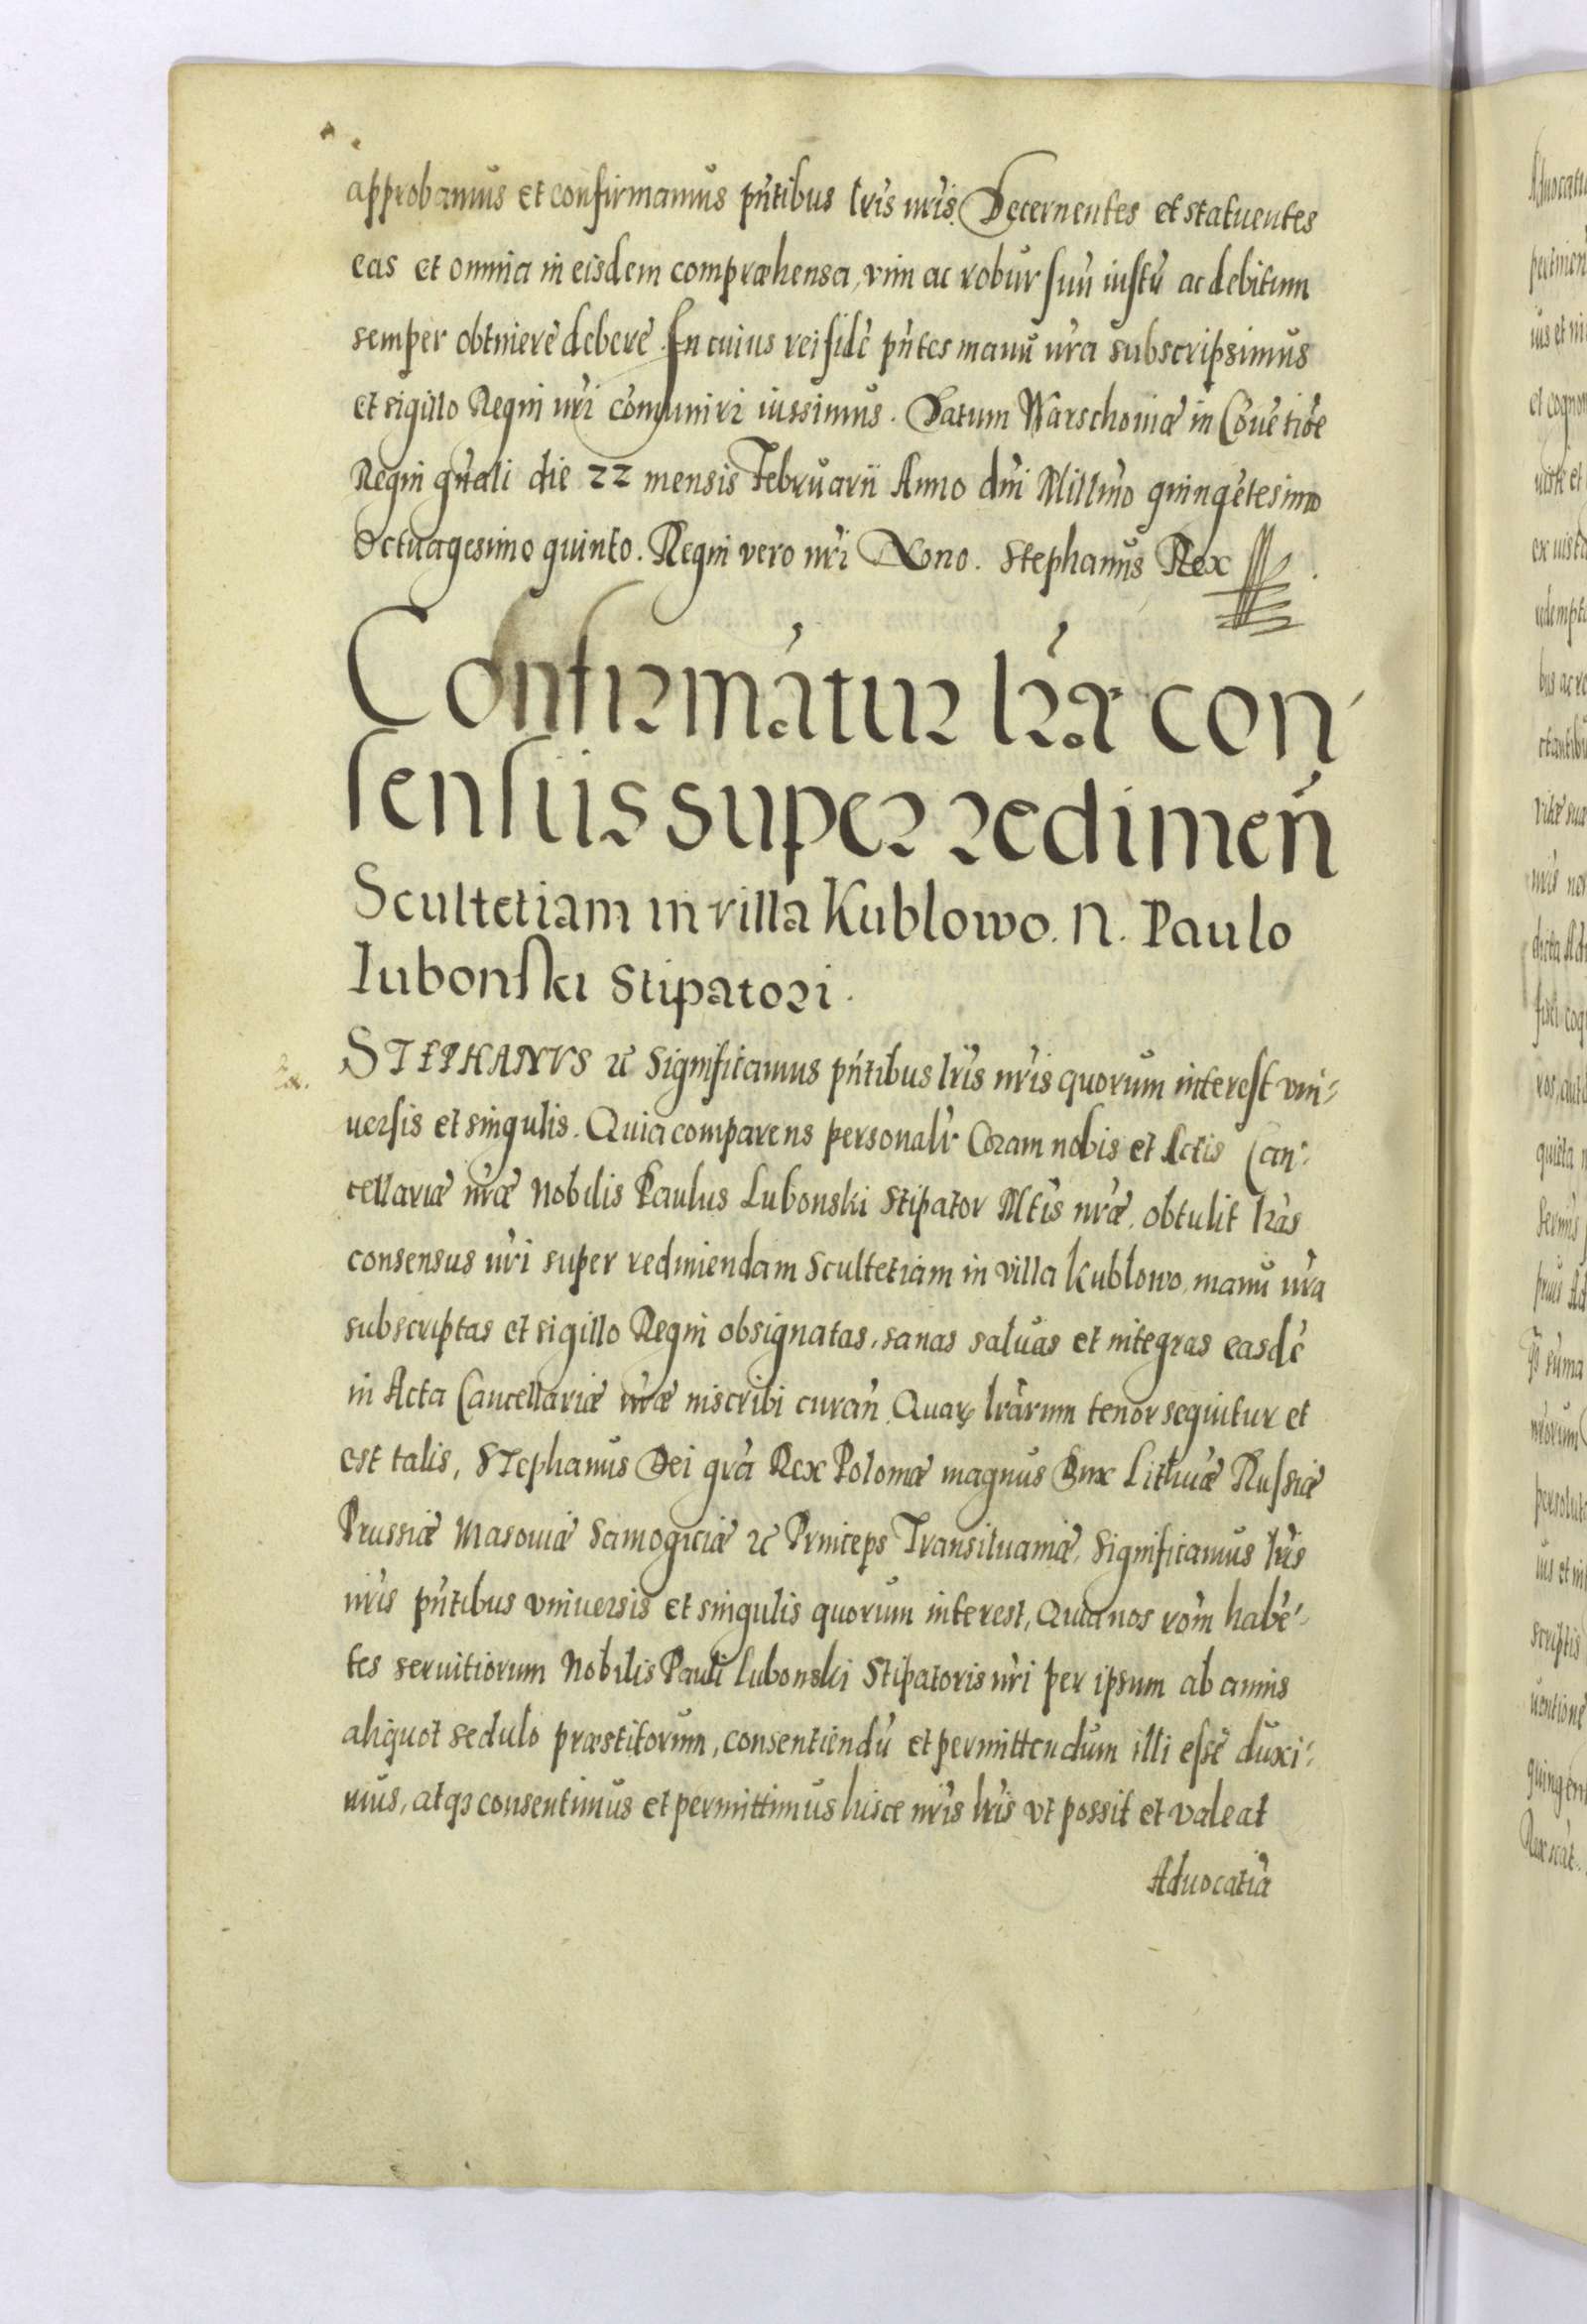 approbamus et confirmamus pñtibus lris nris. Decernentes et statuentes
eas et omnia in eisdem compræhensa, vim ac robur suũ iustũ ac debitum
semper obtinere debere. In cuius rei fidẽ pñtes manu nra subscripsimus
et sigillo Regni nri cõmuniri iussimus. Datum Warschoviæ in Cõuẽtiõe
Regni gñali die 22 mensis Februarii Anno dni Millmo quingẽtesimo
Octuagesimo quinto. Regni vero nri Nono. Stephanus Rex
Confirmãtur lræ con-
sensus super redimeñ
Scultetiam in villa Kublowo. N. Paulo
Lubonski Stipatori.
Ex.
STEPHANVS &c Significamus pñtibus lris nris quorum interest vni-
uersis et singulis. Quia comparens personalr Coram nobis et Actis Can-
cellariæ nræ Nobilis Paulus Lubonski Stipator Mtis nræ, obtulit lras
consensus nri super redimendam Scultetiam in villa Kublowo, manu nra
subscriptas et sigillo Regni obsignatas, sanas saluas et integras easdẽ
in Acta Cancellariæ nræ inscribi curañ. Quarꝝ lrarum tenor sequitur et
est talis, Stephanus Dei gra Rex Poloniæ magnus Dux Lithuæ Russiæ
Prussiæ Masouiæ Samogitiæ &c Princeps Transiluaniæ. Significamus lris
nris pñtibus vniuersis et singulis quorum interest, Quia nos rõm habẽ-
tes seruitiorum Nobilis Pauli Lubonski Stipatoris nri per ipsum ab annis
aliquot sedulo præstitorum, consentiendũ et permittendum illi esse duxi-
mus, atqꝫ consentimus et permittimus hisce nris lris vt possit et valeat
Aduocatiã